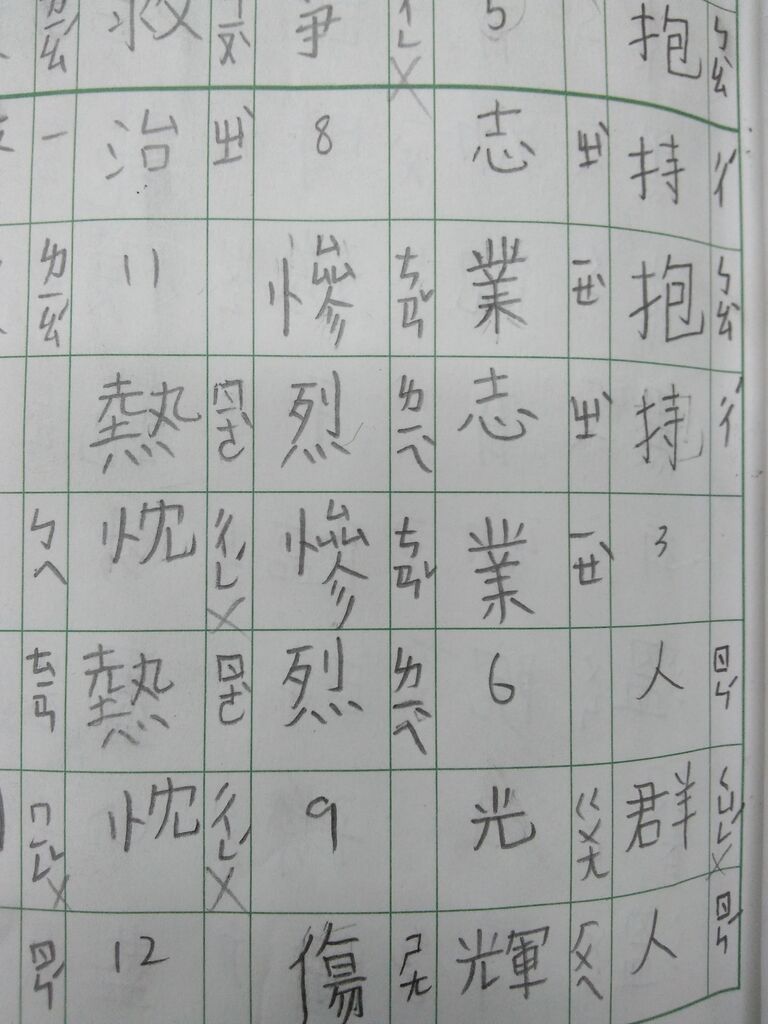 抱持抱持3人群人
ㄅㄠˋ ㄔˊ ㄅㄠˋ ㄔˊ ㄖㄣˊ ㄑㄩㄣˊ ㄖㄣˊ
5志業志業6光輝
ㄓˋ ㄧㄝˋ ㄓˋ ㄧㄝˋ ㄍㄨㄤ ㄏㄨㄟ
爭8慘烈慘烈9傷
ㄘㄢˇ ㄌㄧㄝˋ ㄘㄢˇ ㄌㄧㄝˋ ㄕㄤ
救治11熱忱熱忱12
ㄓˋ ㄖㄜˋ ㄔㄣˊ ㄖㄜˋ ㄔㄣˊ